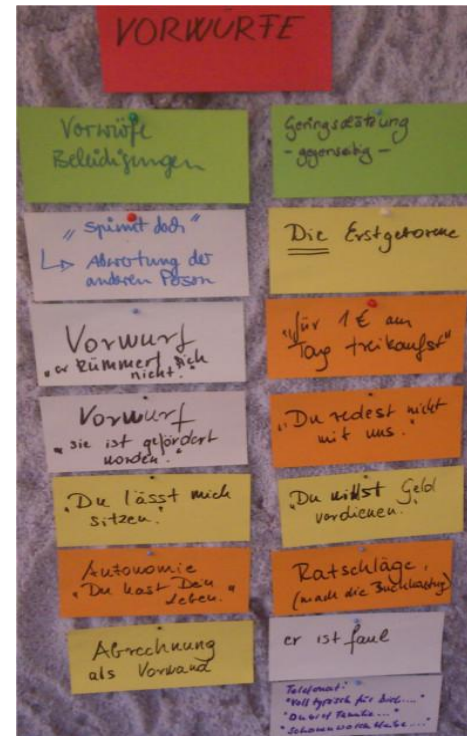 VORWÜRFE
Vorwürfe
Beleidigungen
"spinnt doch"
↳ Abwertung der
anderen Person
Vorwurf
"er kümmert sich
nicht."
Vorwurf
"sie ist gefördert
worden."
"Du lässt mich
sitzen."
Autonomie
"Du hast Dein
Leben."
Abrechnung
als Vorwand
Geringschätzung
- gegenseitig -
Die Erstgeborene
"für 1 € am
Tag freikaufst"
"Du redest nicht
mit uns."
"Du willst Geld
verdienen."
Ratschläge,
(mach die Buchhaltung)
er ist faul
Telefonat:
"Voll typisch für Dich...."
"Du bist Familie..."